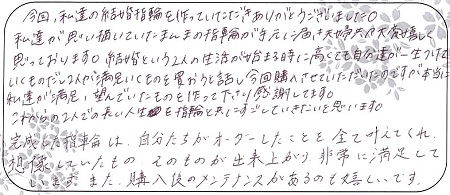 今回、私達の結婚指輪を作っていただきありがとうございました。
私達が思い描いていたまんまの指輪が手元に届き夫婦共々大変嬉しく
思っております。結婚という2人の生活が始まる時に高くても自分達が一生つけて
いくものだし2人が満足いくものを買おうと話し今回購入させていただいたのですが本当に
私達が満足し望んでいたものを作って下さり感謝してます。
これからの2人での長い人生を指輪と共にすごしていきたいと思います。
完成した指輪は、自分たちがオーダーしたことを全て叶えてくれ、
想像していたもの、そのものが出来上がり、非常に満足して
います。また、購入後のメンテナンスがあるのも嬉しいです。